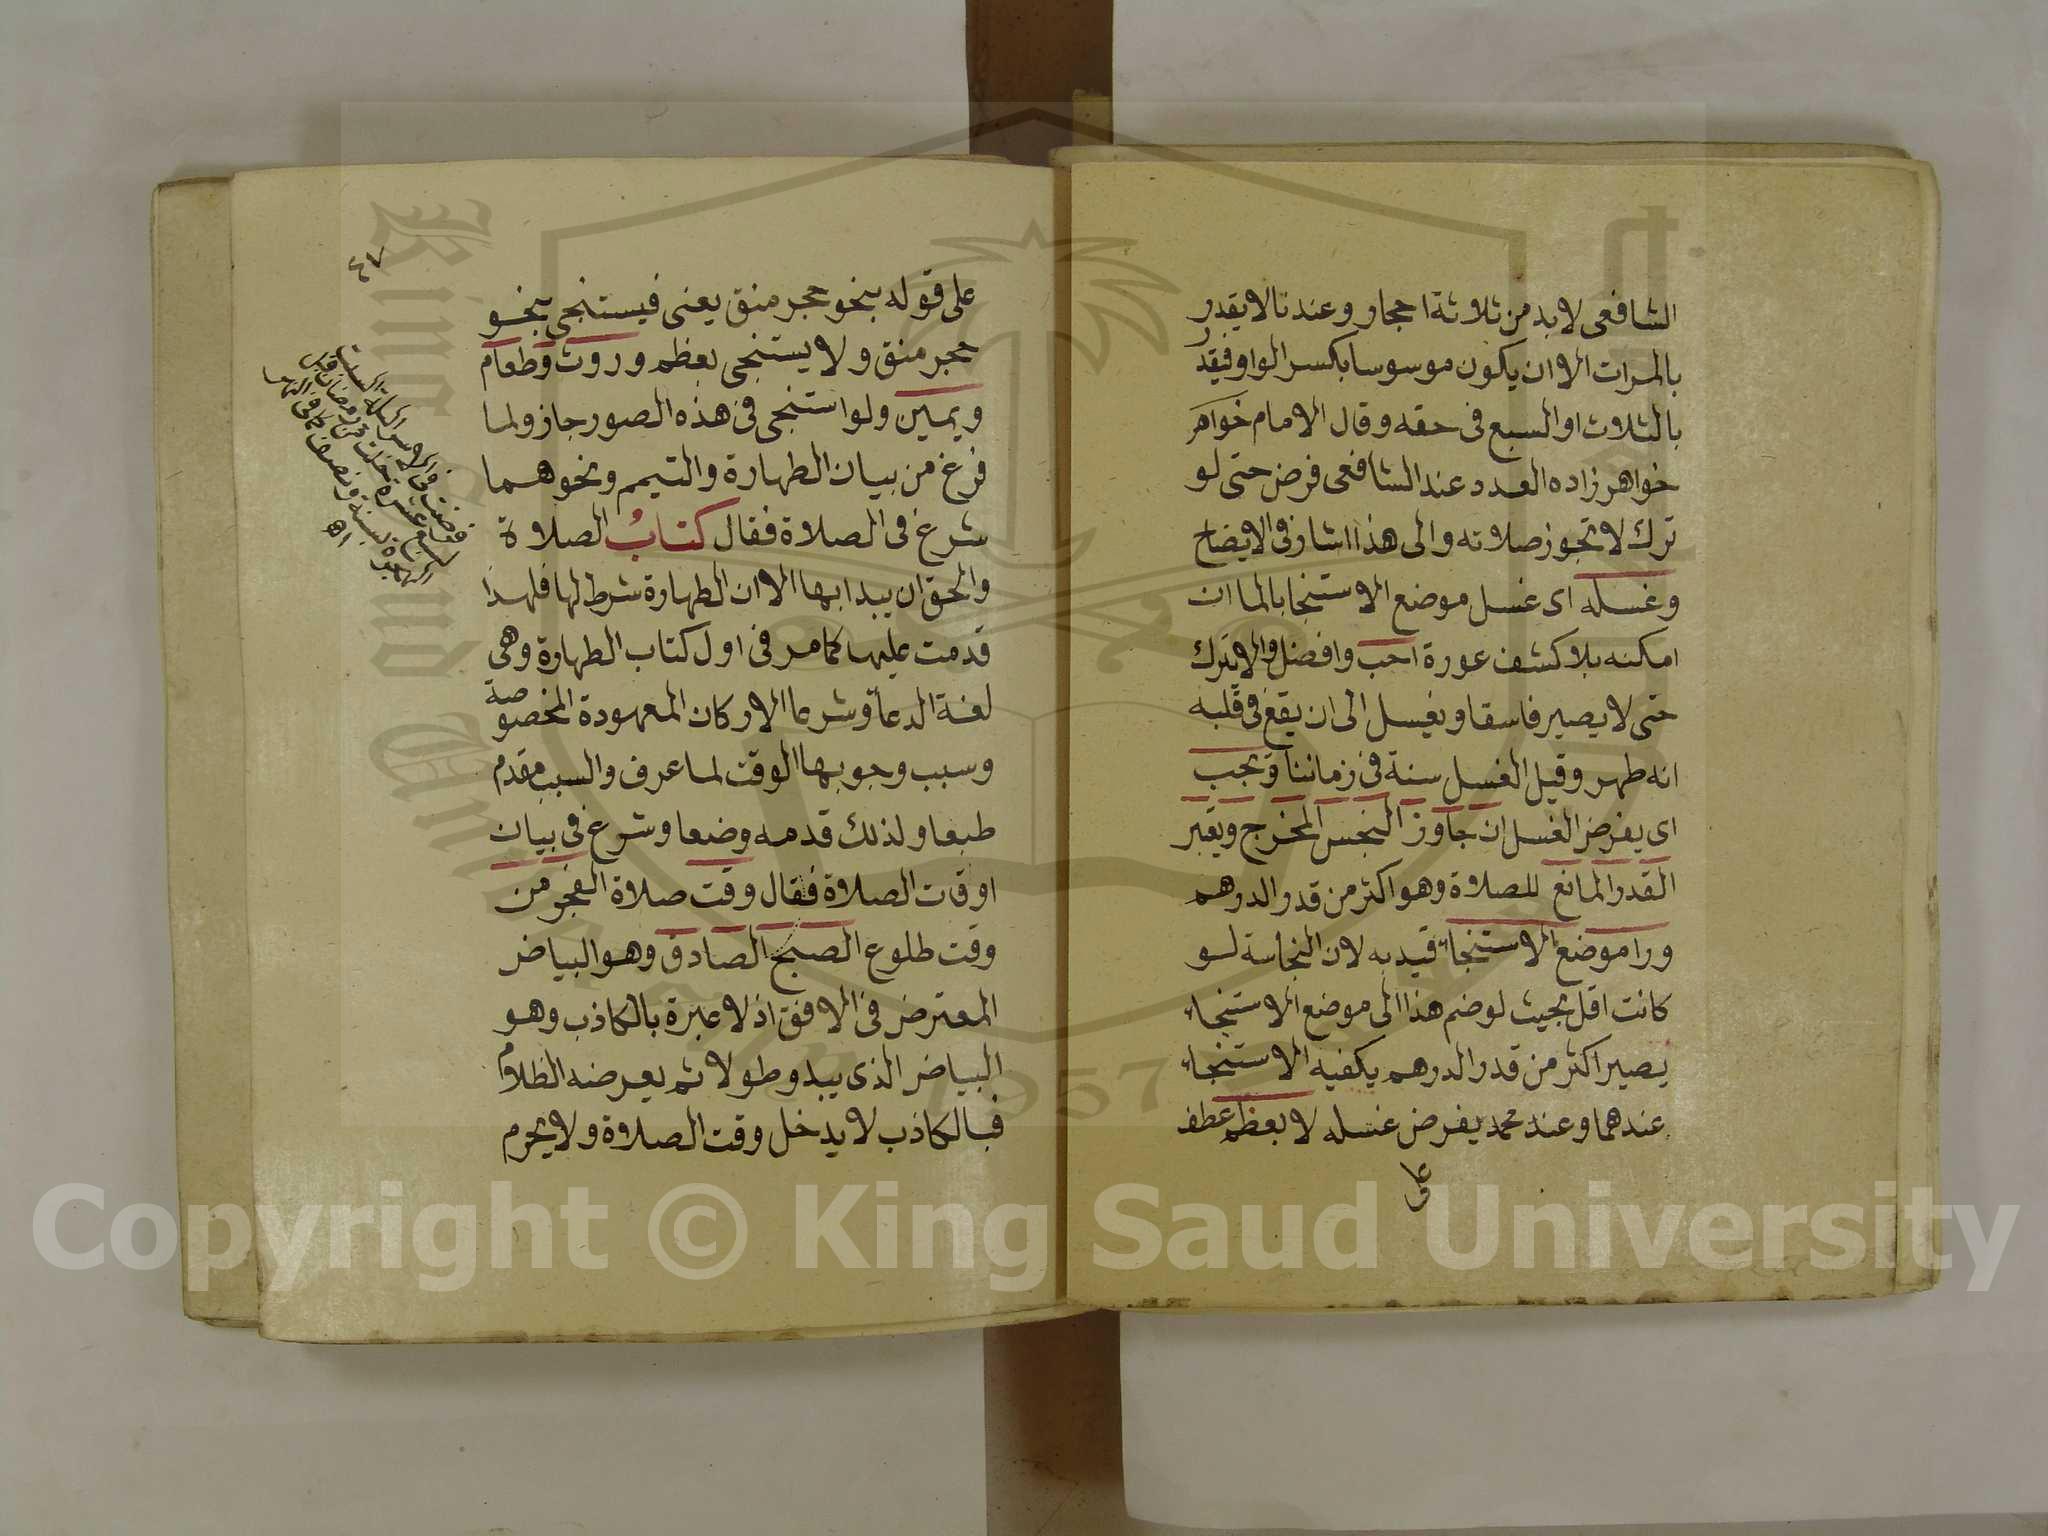 الشافعى لا بد من ثلاثة احجار وعندنا لا يقدر
بالمرات الا ان يكون موسوسا بكسر الواو فيقدر
بالثلاث او السبع فى حقه وقال الامام خواهر
خواهر زاده العدد عند الشافعى فرض حتى لو
ترك لا تجوز صلاته والى هذا اشار فى الايضاح
وغسله اى غسل موضع الاستنجا بالما ان
امكنه بلا كشف عورة احب وافضل والا ترك
حتى لا يصير فاسقا ويغسل الى ان يقع فى قلبه
انه طهر وقيل الغسل سنة فى زماننا ويجب
اى يفرض الغسل ان جاوز النجس المخرج ويعتبر
القدر المانع للصلاة وهو اكثر من قدر الدرهم
ورا موضع الاستنجاء قيد به لان النجاسة لو
كانت اقل بحيث لو ضم هذا الى موضع الاستنجاء
يصير اكثر من قدر الدرهم يكفيه الاستنجاء
عندهما وعند محمد يفرض غسله لا بعظم عطف
على
٤٧
على قوله بنحو حجر منق يعنى فيستنجى بنحو
حجر منق ولا يستنجى بعظم وروث وطعام
ويمين ولو استنجى فى هذه الصور جاز ولما
فرغ من بيان الطهارة والتيمم ونحوهما
شرع فى الصلاة فقال كتاب الصلاة
والحق ان يبدا بها الا ان الطهارة شرط لها فلهذا
قدمت عليها كما مر فى اول كتاب الطهارة وهى
لغة الدعاء وشرعا الاركان المعهودة المخصوصة
وسبب وجوبها الوقت لما عرف والسبب مقدم
طبعا ولذلك قدمه وضعا وشرع فى بيان
اوقات الصلاة فقال وقت صلاة الفجر من
وقت طلوع الصبح الصادق وهو البياض
المعترض فى الافق اذ لا عبرة بالكاذب وهو
البياض الذى يبدو طولا ثم يعرضه الظلام
فبالكاذب لا يدخل وقت الصلاة ولا يحرم
فرضت
من رمضان قبل
الهجرة بسنة ونصف كما فى النهر
اه
King Saud University
1957
Copyright © King Saud University